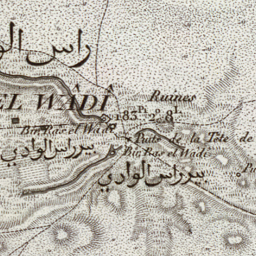 راس الو
EL WADI
Ruines
183.Pi 2.o 8.L
Bir Ras el Wadi
Puits de la Tête de
بير راس الوادي
Bir Ras el Wadi
بير راس الوادي
Pu